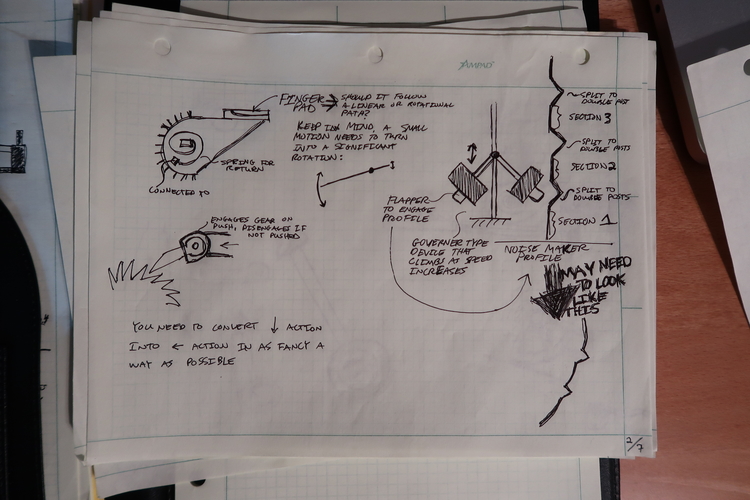 AMPAD
FINGER
PAD
SHOULD IT FOLLOW
A LINEAR OR ROTATIONAL
PATH?
KEEP IN MIND, A SMALL
MOTION NEEDS TO TURN
INTO A SIGNIFICANT
ROTATION:
SPRING FOR
RETURN
CONNECTED TO
ENGAGES GEAR ON
PUSH, DISENGAGES IF
NOT PUSHED
YOU NEED TO CONVERT ↓ ACTION
INTO ← ACTION IN AS FANCY A
WAY AS POSSIBLE
FLAPPER
TO ENGAGE
PROFILE
GOVERNER TYPE
DEVICE THAT
CLIMBS AS SPEED
INCREASES
SPLIT TO
DOUBLE POST
SECTION 3
SPLIT TO
DOUBLE POSTS
SECTION 2
SPLIT TO
DOUBLE POSTS
SECTION 1
NOISE MAKER
PROFILE
MAY NEED
TO LOOK
LIKE
THIS
2/7